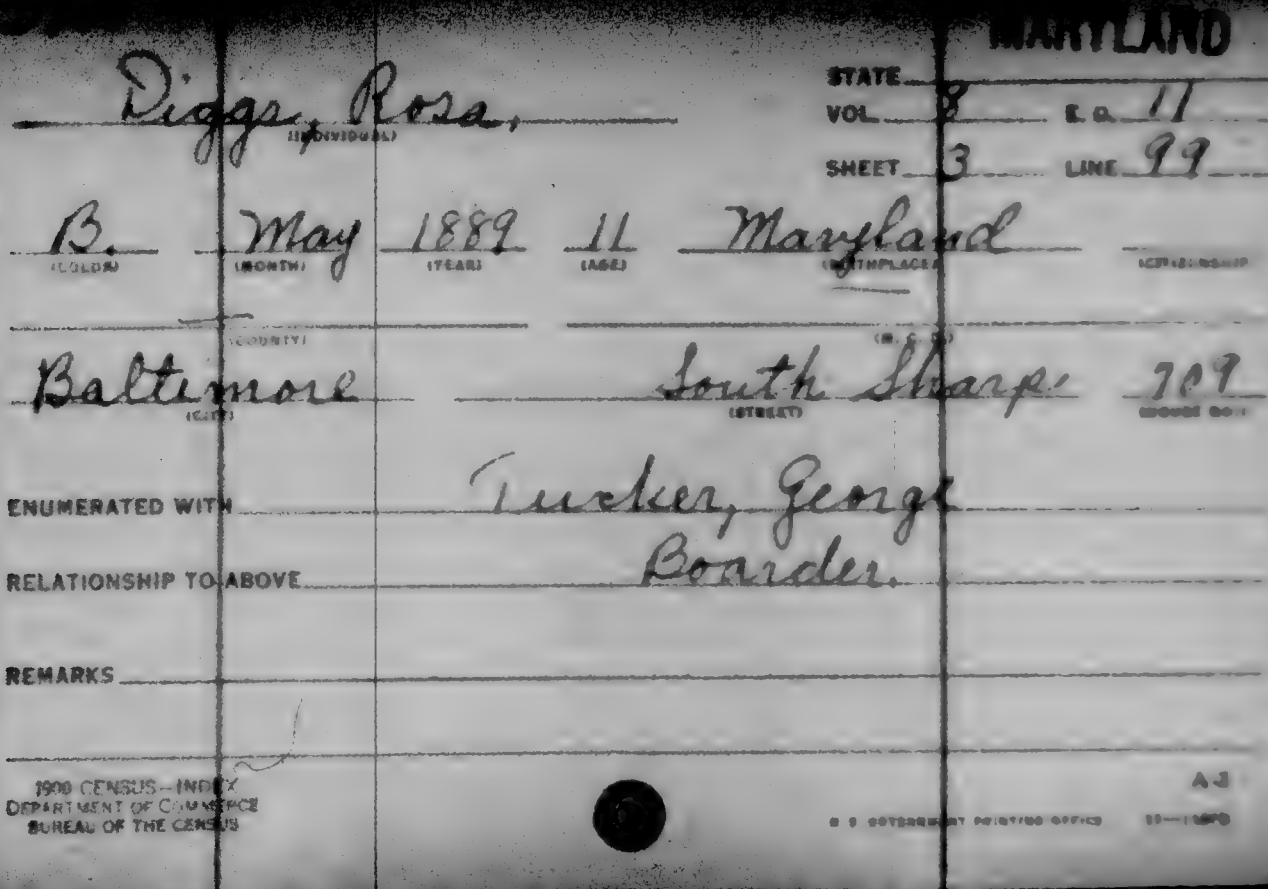 MARYLAND
STATE
Diggs, Rosa,
(INDIVIDUAL)
VOL. 8 E. D. 11
SHEET 3 LINE 99
B. May 1889 11 Maryland
(COLOR) (MONTH) (YEAR) (AGE) (BIRTHPLACE) (CITIZENSHIP)
(COUNTY) (M. C. D.)
Baltimore South Sharp. 709
(CITY) (STREET) (HOUSE NO.)
ENUMERATED WITH Tucker, George
RELATIONSHIP TO ABOVE Boarder.
REMARKS
1900 CENSUS—INDEX
DEPARTMENT OF COMMERCE
BUREAU OF THE CENSUS
U S GOVERNMENT PRINTING OFFICE